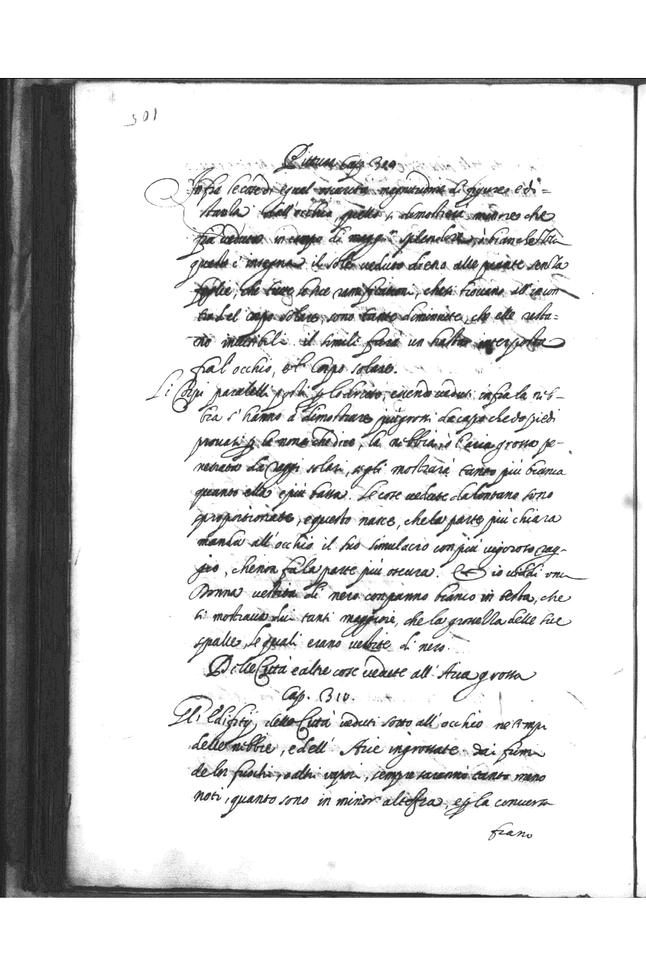 301
Pittura Cap. 309
Infra le cose di equal oscurità magnitudine di figura e di=
stantia dall'occhio, quella si dimostrerà minore che
fia veduta in campo di magg.r splendore, ò bianchezza
questo c'insegna il sole veduto dietro alle piante senza
foglie, che tutte le sue ramificationi, che si trovano all'incon
tro del corpo solare, sono tanto diminuite, che elle resta=
no invisibili. il simili farà un hasta interposta
fra l'occhio, e 'l corpo solare.
Li corpi paralelli posti p lo dritto, essendo veduti infra la neb=
bia s'hanno à dimostrare più grossi da capo che da piedi
provasi p la nona che dice, la nebbia, o l'aria grossa pe=
netrata da raggi solari, si mostrarà tanto più bianca
quanto ella è più bassa. Le cose vedute da lontano sono
sproportionate, e questo nasce, che la parte più chiara
manda all'occhio il suo simulacro con più vigoroso rag=
gio, che non fa la parte più oscura. Et io viddi una
Donna vestita di nero con panno bianco in testa, che
si mostrava dui tanti maggiore, che la grossezza delle sue
spalle, le quali erano vestite di nero.
Delle Città e altre cose vedute all'Aria grossa
Cap. 310.
Gli Edifity delle Città veduti sotto all'occhio ne tempi
delle nebbie, e dell'Arie ingrossate dai fumi
de lor fuochi, o altri vapori, sempre saranno tanto meno
noti, quanto sono in minor altezza, e p la conversa
frano